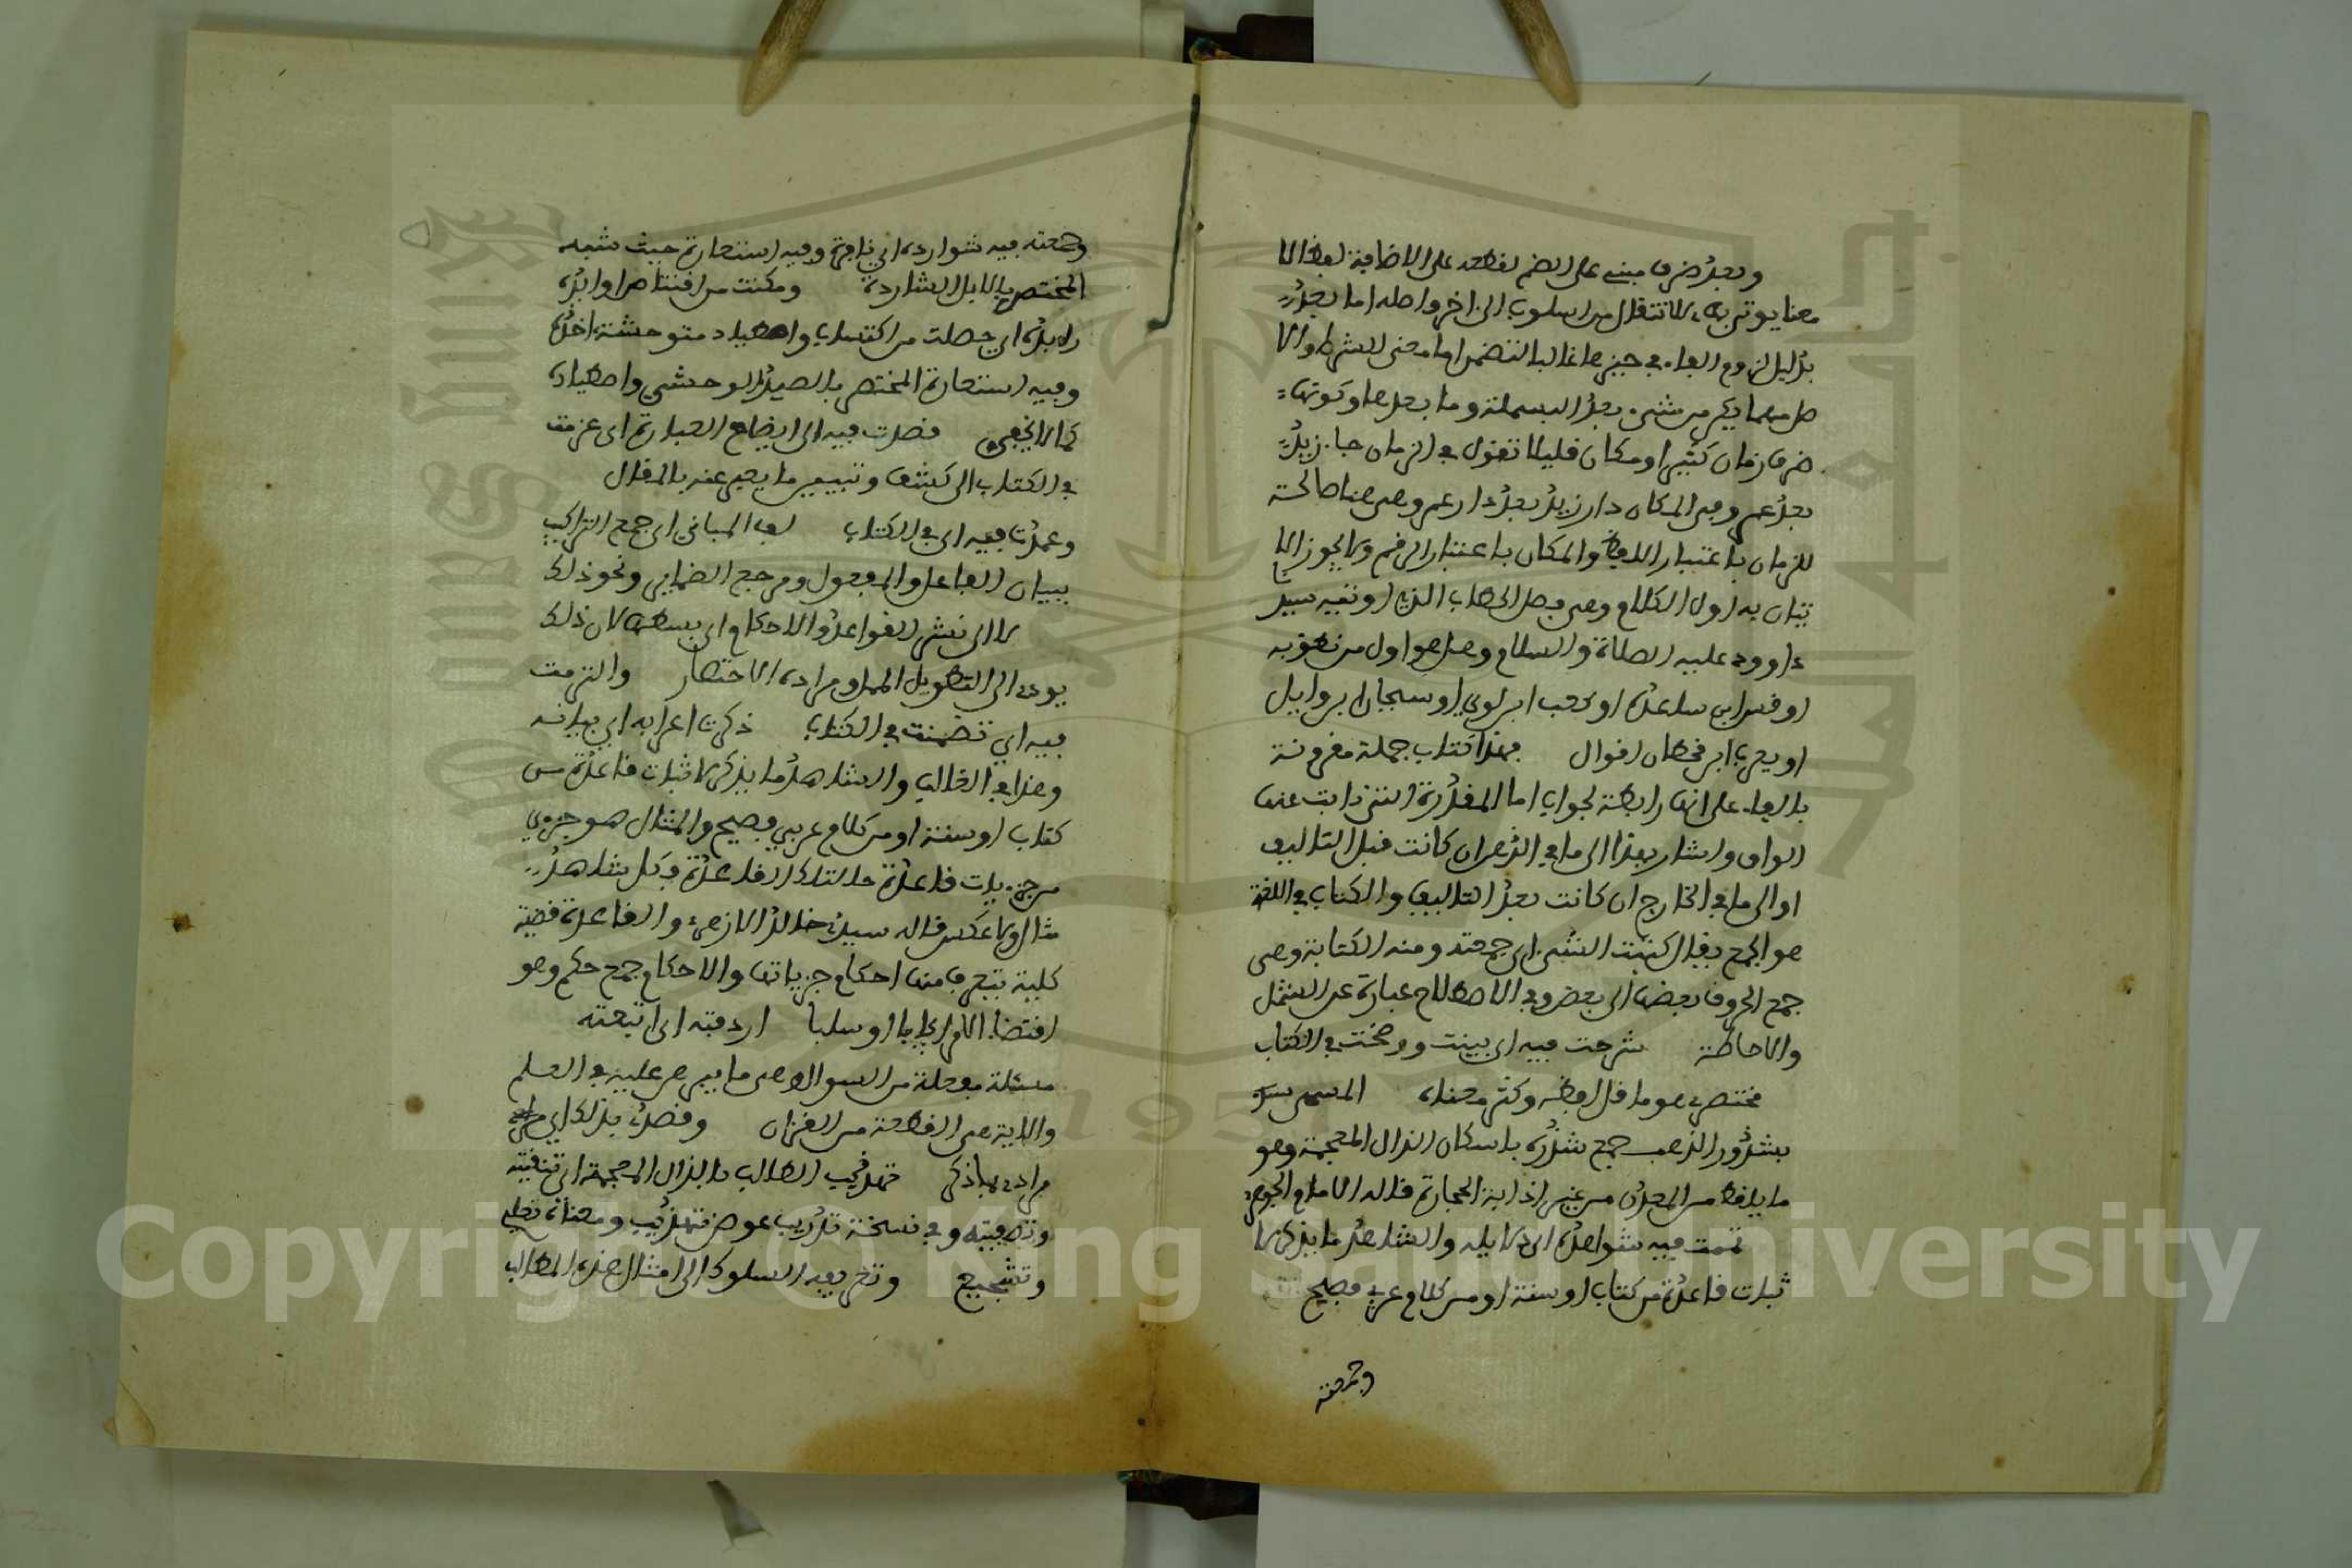 وبعد ضرف مبني على الضم لقطعه على الاضافة لفظا لا
معنا يوتى به للانتقال من اسلوب الى اخر واصله اما بعد
بدليل لزوم الفاء في حيزها غالبا لتضمن اما معنى الشرط والا
صل مهما يكن من شيء بعد البسملة وما بعدها وتكون
ضرف زمان كثيرا ومكان قليلا تقول في الزمان جاء زيد
بعد عمر وفي المكان دار زيد بعد دار عمر وهي هنا صالحة
للزمان باعتبار اللفظ والمكان باعتبار الرقم ولا يجوز الا
تيان به اول الكلام وهي فصل الخطاب الذي اوتيه سيدنا
داوود عليه الصلاة والسلام وهل هو اول من نطق به
او قس ابن ساعدة او كعب ابن لوي او سحبان ابن وايل
او يعرب ابن قحطان اقوال فهذا كتاب جملة مقرونة
بالفاء على انها رابطة لجواب اما المقدرة التي نابت عنها
الواو واشار بهذا الى ما في الذهن ان كانت قبل التاليف
او الى ما في الخارج ان كانت بعد التاليف والكتاب في اللغة
هو الجمع يقال كتبت الشيء اي جمعته ومنه الكتابة وهي
جمع الحروف بعضها الى بعض وفي الاصطلاح عبارة عن الشمل
والاحاطة شرحت فيه اي بينت ووضحت في الكتاب
مختصري هو ما قل لفظه وكثر معناه المسمى
بشذور الذهب جمع شذرة باسكان الذال المعجمة وهو
ما يلقط من المعدن من غير اذابة الحجارة قاله الامام الجوهري
تممت فيه شواهده اي دلايله والشاهد ما يذكر لا
ثبات قاعدة من كتاب او سنة او من كلام عربي فصيح
وجمعت
وجمعته فيه شوارده اي نافرة وفيه استعارة حيث شبه
المختصر بالابل الشاردة ومكنت من اقتناص اوابده
رابده اي حصلت من اكتساب واصطياد متوحشته اخذه
وفيه استعارة المختصر بالصيد الوحشي واصطياده
كما لا يخفى قصدت فيه الى ايضاح العبارة اي عزمت
في الكتاب الى كشف وتبيين ما يعبر عنه بالمقال
وعمدت فيه اي في الكتاب لف المباني اي جمع التراكيب
ببيان الفاعل والمفعول ومرجع الضماير ونحو ذلك
لا الى نشر القواعد والاحكام اي بسطها لان ذلك
يودي الى التطويل الممل ومراده الاختصار والتزمت
فيه اي تضمنت في الكتاب ذكرت اعرابه اي بيانه
وهذا في الغالب والشاهد ما يذكر لاثبات قاعدة من
كتاب او سنة او من كلام عربي فصيح والمثال هو جزءي
من جزءيات قاعدة تلك القاعدة فكل شاهد
مثال ولا عكس قاله سيدي خالد الازهري والقاعدة قضية
كلية تتعرف منها احكام جزياتها والاحكام جمع حكم وهو
اقتضاء الامر ايجابا او سلبا اردفته اي اتبعته
مسئلة مفعلة من السوال وهي ما يبرهن عليه في العلم
والاية هي القطعة من القرءان وقصدي بذلك اي
مرادي بما ذكر تهذيب الطالب بالذال المعجمة اي تنقيته
وتصفيته وفي نسخة تدريب عوض تهذيب ومعناه تعليم
وتشجيع وتعريفه السلوك الى امثال هذه المطالب